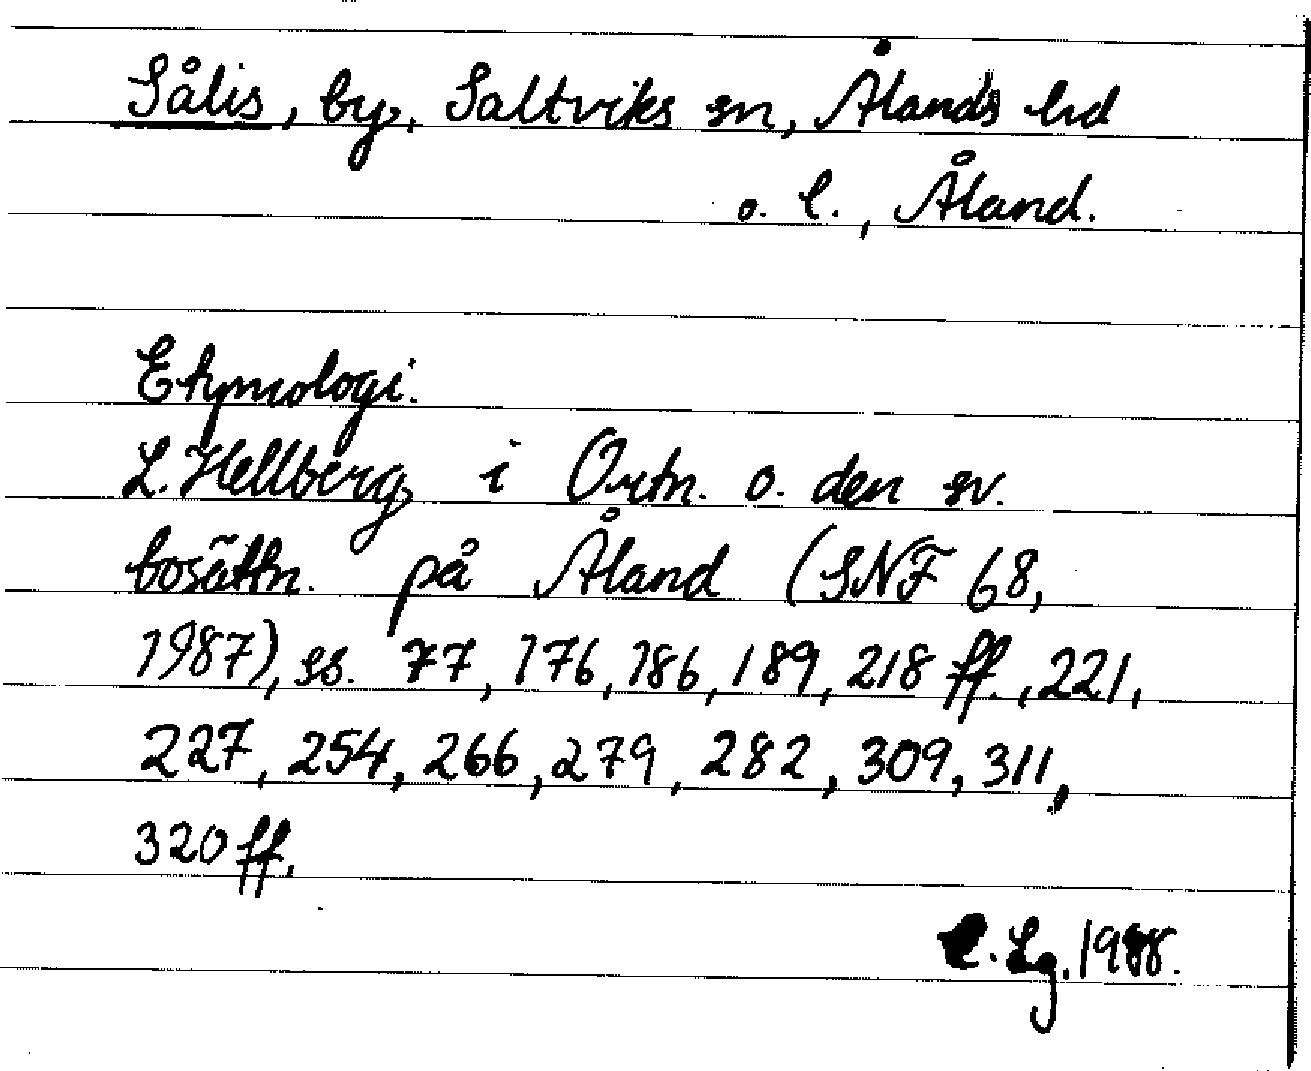 Sålis, by, Saltviks sn, Ålands hd
o. l., Åland.
Etymologi.
L. Hellberg i Ortn. o. den sv.
bosättn. på Åland (SNF 68,
1987), ss. 77, 176, 186, 189, 218 ff., 221,
227, 254, 266, 279, 282, 309, 311,
320 ff.
C. Lg. 1988.